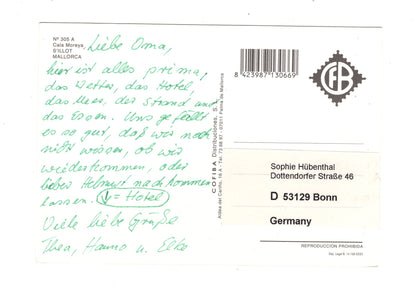 Nº 305 A
Cala Moreya
S'ILLOT
MALLORCA
Liebe Oma,
hier ist alles prima,
das Wetter, das Hotel,
das Meer, der Strand und
das Essen. Uns gefällt
es so gut, daß wir noch
nicht wissen, ob wir
wiederkommen, oder
lieber Helmut nachkommen
lassen. = Hotel
Viele liebe Grüße
Thea, Hanno u. Elke
COFIBA Distribuciones, S.
8 423987 130669
Sophie Hübenthal
Dottendorfer Straße 46
D 53129 Bonn
Germany
REPRODUCCION PROHIBIDA